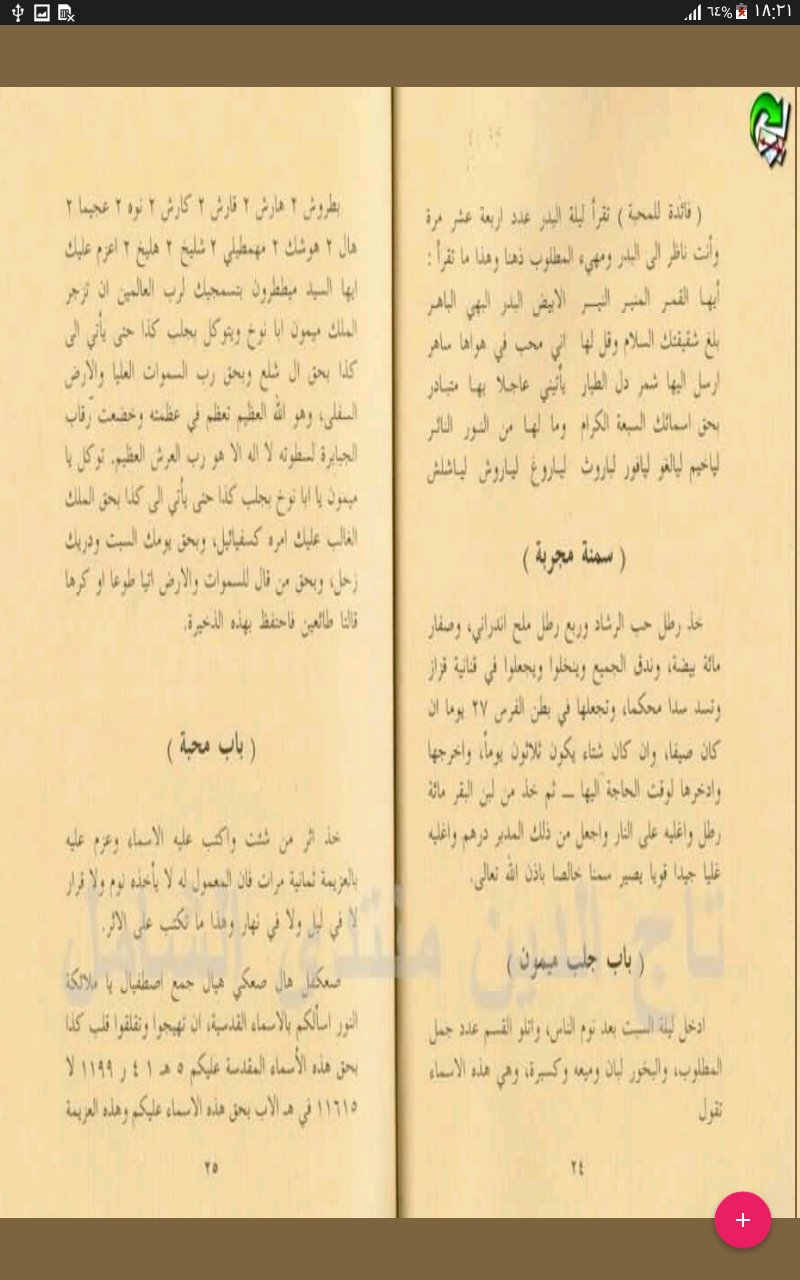 ١٨:٢١ ٦٤%
( فائدة للمحبة ) تقرأ ليلة البدر عدد اربعة عشر مرة
وأنت ناظر الى البدر ومهيء المطلوب ذهنا وهذا ما تقرأ :
أيها القمر المنير النيـر الابيض البدر البهي الباهر
بلغ شقيقتك السلام وقل لها اني محب في هواها ساهر
ارسل اليها شمر دل الطيار يأتيني عاجلا بها متبادر
بحق اسمائك السبعة الكرام وما لها من النور النائر
لياخيم ليالغو ليافور لباروث لياروغ لياروش لياشلش
( سمنة مجربة )
خذ رطل حب الرشاد وربع رطل ملح اندراني، وصفار
مائة بيضة، وندق الجميع وينخلوا ويجعلوا في قنانية قزاز
وتسد سدا محكما، وتجعلها في بطن الفرس ٢٧ يوما ان
كان صيفا، وان كان شتاء يكون ثلاثون يوماً، واخرجها
وادخرها لوقت الحاجة اليها ـــ ثم خذ من لبن البقر مائة
رطل واغليه على النار واجعل من ذلك المدبر درهم واغليه
غليا جيدا قويا يصير سمنا خالصا باذن الله تعالى.
( باب جلب ميمون )
ادخل ليلة السبت بعد نوم الناس، واتلو القسم عدد جمل
المطلوب، والبخور لبان وميعه وكسبرة، وهي هذه الاسماء
تقول
٢٤
بطروش ٢ هارش ٢ قارش ٢ كارش ٢ نوه ٢ عجيما ٢
هال ٢ هوشك ٢ مهمطيلي ٢ شليخ ٢ هليخ ٢ اعزم عليك
ايها السيد ميططرون بتسمجيك لرب العالمين ان تزجر
الملك ميمون ابا نوخ ويتوكل بجلب كذا حتى يأتي الى
كذا بحق ال شلع وبحق رب السموات العليا والارض
السفلى، وهو الله العظيم تعظم في عظمته وخضعت رقاب
الجبابرة لسطوته لا اله الا هو رب العرش العظيم. توكل يا
ميمون يا ابا نوخ بجلب كذا حتى يأتي الى كذا بحق الملك
الغالب عليك امره كسفيائيل، وبحق يومك السبت ودريك
زحل، وبحق من قال للسموات والارض اتيا طوعا او كرها
قالتا طائعين فاحتفظ بهذه الذخيرة.
( باب محبة )
خذ اثر من شئت واكتب عليه الاسماء وعزم عليه
بالعزيمة ثمانية مرات فان المعمول له لا يأخذه نوم ولا قرار
لا في ليل ولا في نهار وهذا ما تكتب على الاثر.
صعكفل هال صعكي هيال جمع اصطفيال يا ملائكة
النور اسألكم بالاسماء القدسية، ان تهيجوا وتقلقوا قلب كذا
بحق هذه الأسماء المقدسة عليكم ٥ هـ ١ ٤ ر ١١٩٩ لا
١١٦١٥ في هـ الاب بحق هذه الاسماء عليكم وهذه العزيمة
٢٥
تاج الدين منتدى الشامل